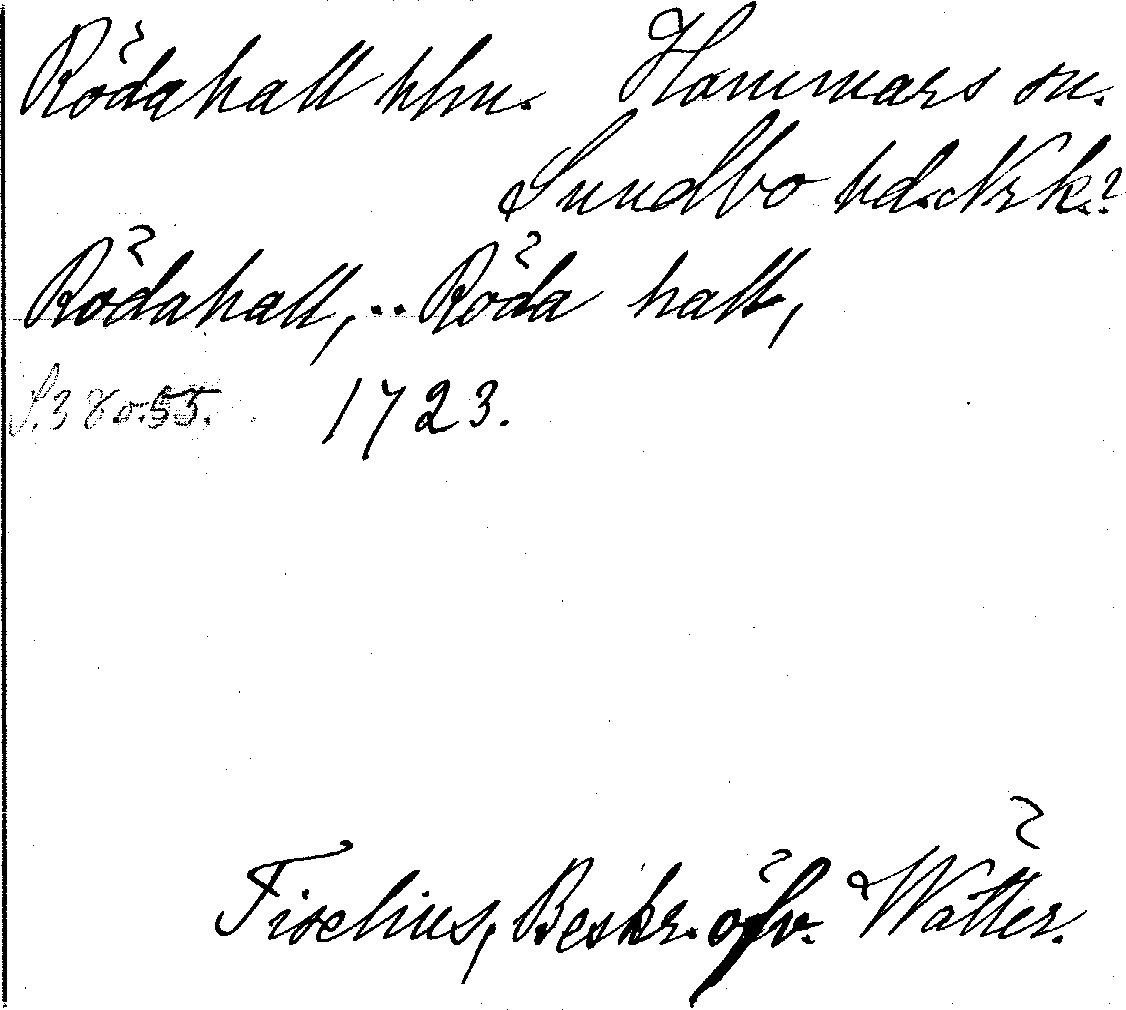 Rödahall hhn. Hammars sn.
Sundbo hd. Nrk.?
Rödahall, .. Röda hall,
S. 38 o. 55. 1723.
Tiselius, Beskr. öfv. Wätter.